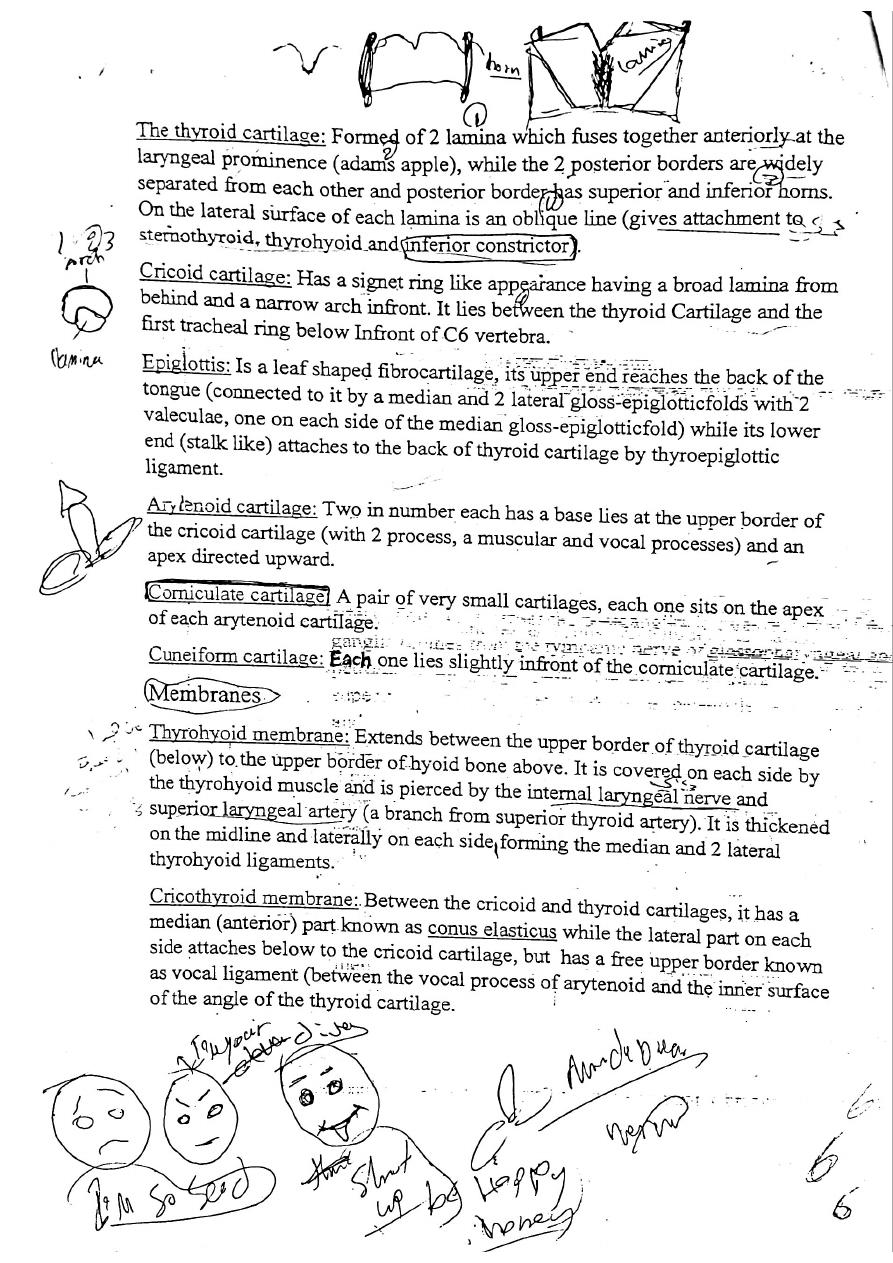 horn
lamina
1
The thyroid cartilage: Formed of 2 lamina which fuses together anteriorly at the
laryngeal prominence (adam's apple), while the 2 posterior borders are widely
separated from each other and posterior border has superior and inferior horns.
On the lateral surface of each lamina is an oblique line (gives attachment to
sternothyroid, thyrohyoid and inferior constrictor).
1 2 3
Arch
lamina
Cricoid cartilage: Has a signet ring like appearance having a broad lamina from
behind and a narrow arch infront. It lies between the thyroid Cartilage and the
first tracheal ring below Infront of C6 vertebra.
Epiglottis: Is a leaf shaped fibrocartilage, its upper end reaches the back of the
tongue (connected to it by a median and 2 lateral gloss-epiglotticfolds with 2
valeculae, one on each side of the median gloss-epiglotticfold) while its lower
end (stalk like) attaches to the back of thyroid cartilage by thyroepiglottic
ligament.
Arytenoid cartilage: Two in number each has a base lies at the upper border of
the cricoid cartilage (with 2 process, a muscular and vocal processes) and an
apex directed upward.
Corniculate cartilage A pair of very small cartilages, each one sits on the apex
of each arytenoid cartilage.
Cuneiform cartilage: Each one lies slightly infront of the corniculate cartilage.
Membranes
Thyrohyoid membrane: Extends between the upper border of thyroid cartilage
(below) to the upper border of hyoid bone above. It is covered on each side by
the thyrohyoid muscle and is pierced by the internal laryngeal nerve and
superior laryngeal artery (a branch from superior thyroid artery). It is thickened
on the midline and laterally on each side, forming the median and 2 lateral
thyrohyoid ligaments.
Cricothyroid membrane: Between the cricoid and thyroid cartilages, it has a
median (anterior) part known as conus elasticus while the lateral part on each
side attaches below to the cricoid cartilage, but has a free upper border known
as vocal ligament (between the vocal process of arytenoid and the inner surface
of the angle of the thyroid cartilage.
I'm so sad
Shut
up
Happy
honey
6
6
6